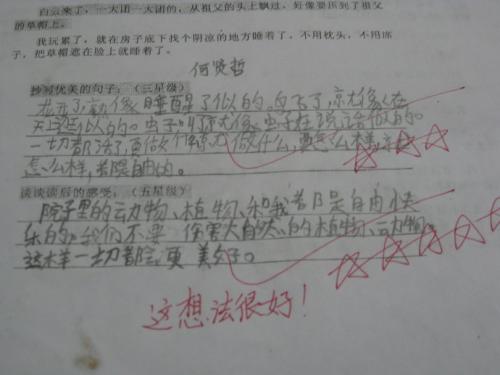 白云来了，一大团一大团的，从祖父的头上飘过，好像要压到了祖父
的草帽上。
我玩累了，就在房子底下找个阴凉的地方睡着了。不用枕头，不用席
子，把草帽遮在脸上就睡着了。
何贤哲
抄写优美的句子：（三星级）
花开了，就像睡醒了似的。鸟飞了，就像在
天上逛似的。虫子叫了，就像虫子在说话似的。
一切都活了，要做什么，就做什么，要怎么样，就
怎么样，都是自由的。
谈谈读后的感受：（五星级）
院子里的动物、植物、和我都是自由快
乐的。我们不要伤害大自然的植物、动物。
这样一切都会更美好。
这想法很好！